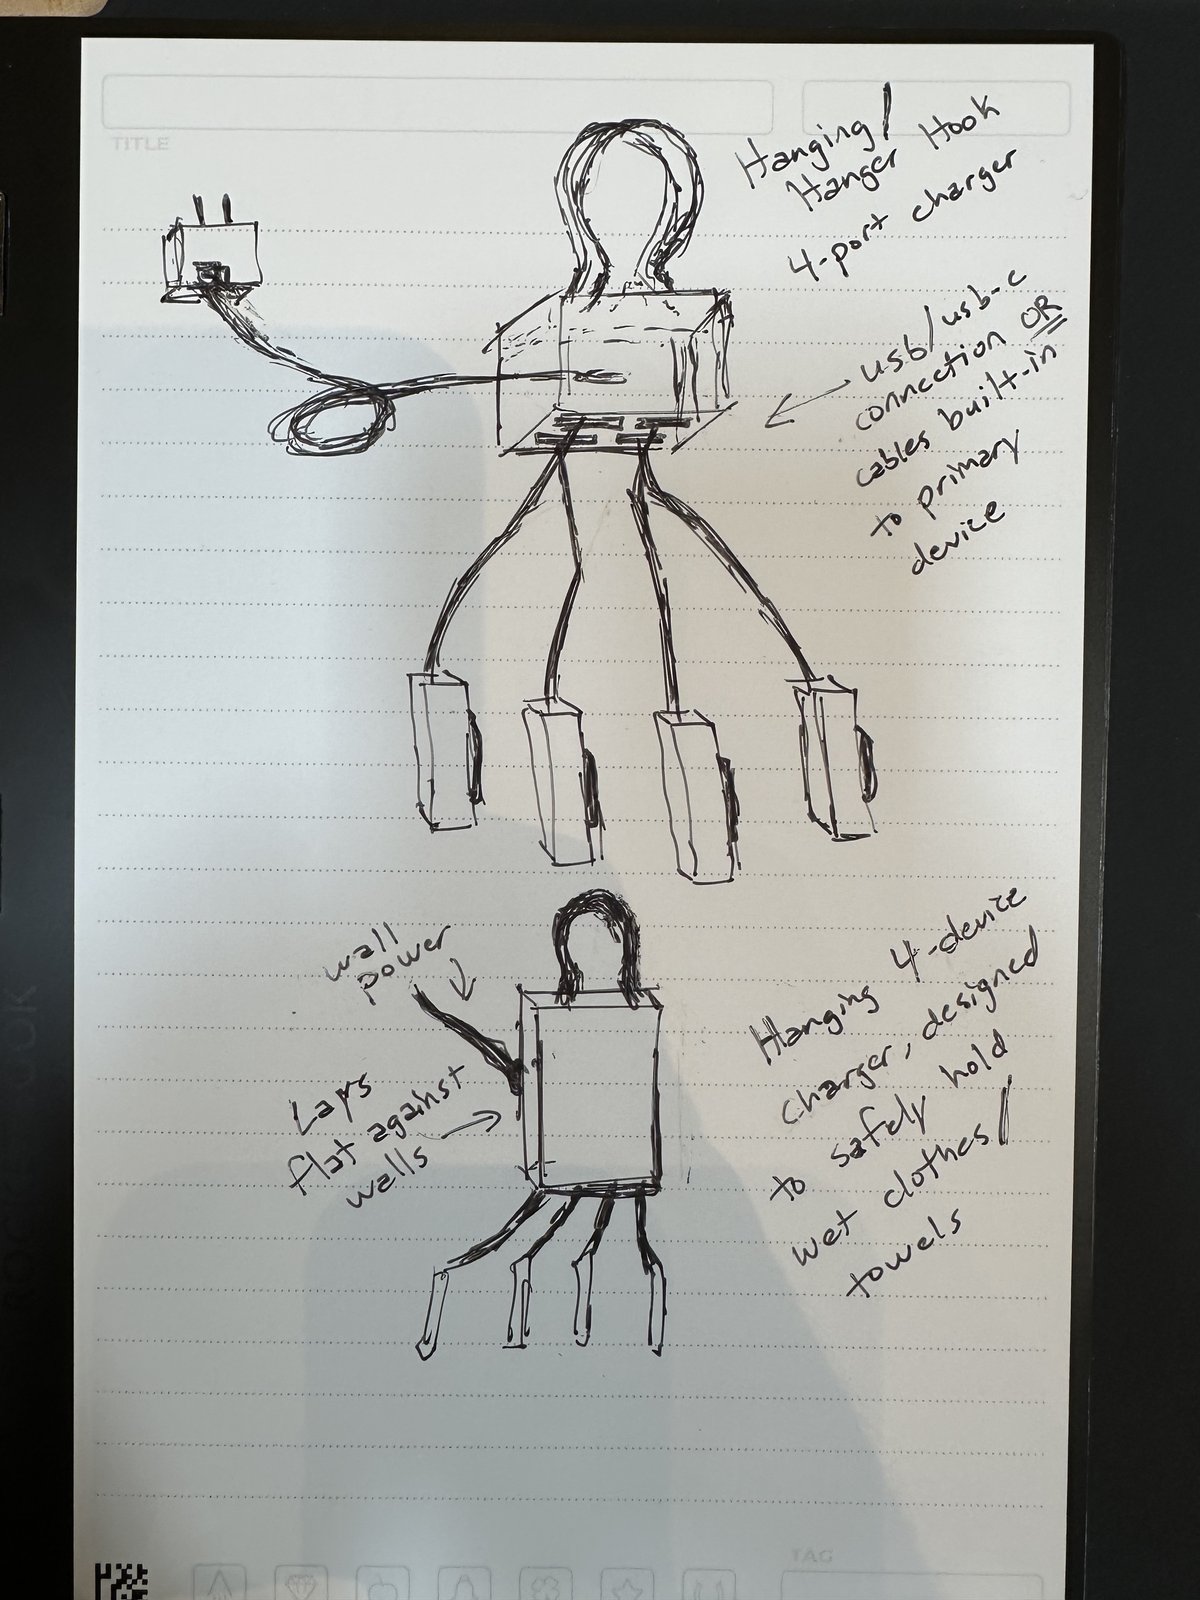 TITLE
Hanging/
Hanger Hook
4-port charger
usb/usb-c
connection OR
cables built-in
to primary
device
wall
power
Lays
flat against
walls
Hanging 4-device
charger, designed
to safely hold
wet clothes/
towels
TAG